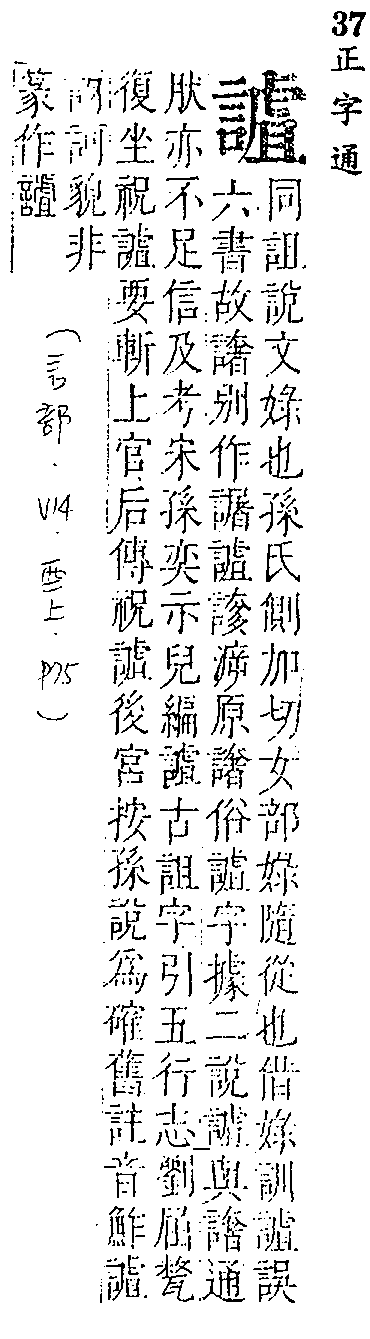 37 正字通
謯
同詛說文娽也孫氏側加切女部娽隨從也借娽訓謯誤
六書故譇別作謯原譇俗謯字據二說謯與譇通
肰亦不足信及考宋孫奕示兒編謯古詛字引五行志劉屈氂
復坐祝謯要斬上官后傳祝謯後宮按孫說爲確舊註音鮓謯
訶貌非
篆作
(言部.V14.酉上.P75)